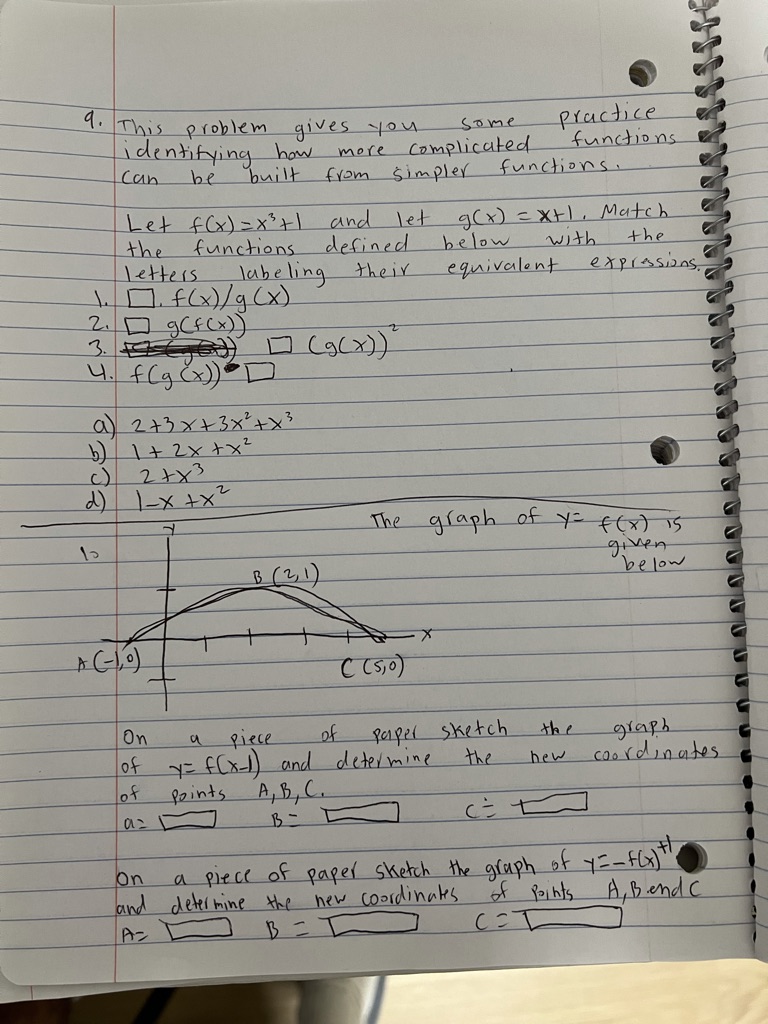 9. This problem gives you some practice
identifying how more complicated functions
can be built from simpler functions.
Let f(x)=x³+1 and let g(x) = x+1. Match
the functions defined below with the
letters labeling their equivalent expressions.
1. □. f(x)/g(x)
2. □ g(f(x))
3. □ (g(x))²
4. f(g(x)) □
a) 2+3x+3x²+x³
b) 1+2x+x²
c) 2+x³
d) 1-x+x²
The graph of y= f(x) is
given
below
1.
y
B (2,1)
x
A(-1,0)
C (5,0)
On a piece of paper sketch the graph
of y= f(x-1) and determine the new coordinates
of points A, B, C.
a= □ B= □ C= □
On a piece of paper sketch the graph of y=-f(x)+1
and determine the new coordinates of points A, B end C
A= □ B = □ C= □